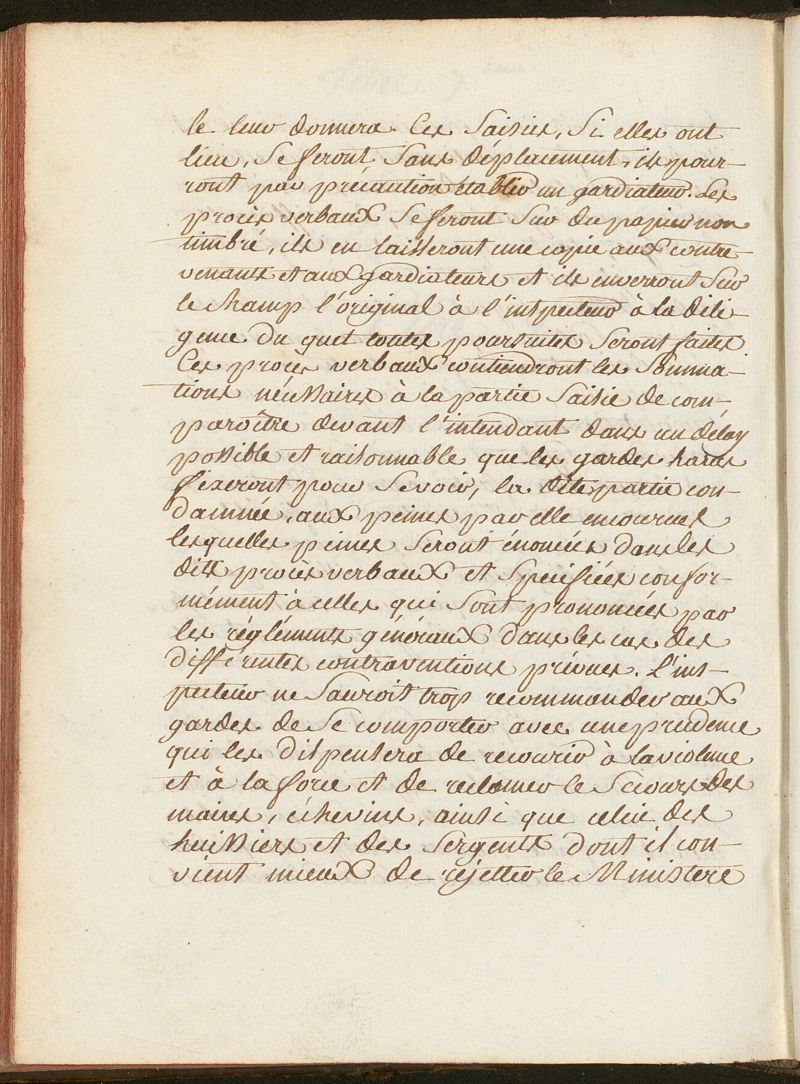 le leur donnera. Ces Saisies, Si elles ont
lieu, Se feront Sans déplacement, ils pour-
ront par précaution établir un gardiateur. Les
procès verbaux Se feront Sur du papier non
timbré, ils en laisseront une copie aux contre
venants et aux gardiateurs et ils enverront Sur
le champ l'original à l'inspecteur à la dili-
gence du quel toutes poursuites Seront faites
Ces procès verbaux contiendront les Somma-
tions nécessaires à la partie Saisie de com-
paroître devant l'intendant dans un délay
possible et raisonnable que les gardes haras
fixeront pour Se voir, la dite partie con-
damnée, aux peines par elle encourues
lesquelles peines Seront énoncées dans les
dits procès verbaux et Spécifiées confor-
mément à celles qui Sont prononcées par
les réglements généraux dans les cas des
différentes contraventions prévues. L'ins-
pecteur ne Sauroit trop recommander aux
gardes de Se comporter avec une prudence
qui les dispensera de recourir à la violence
et à la force et de reclamer le Secours des
maires, échevins, ainsi que celui des
huissiers et des Sergents dont il con-
vient mieux de rejetter le Ministere